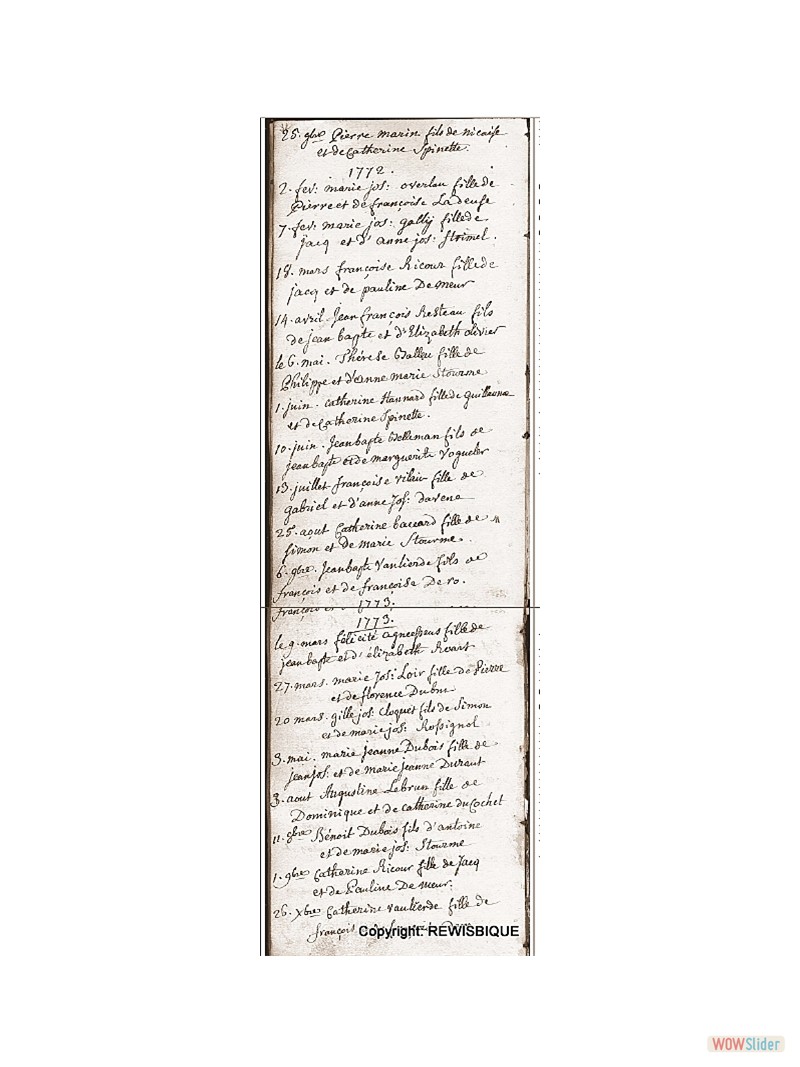 25. 9bre Pierre marin fils de nicaise
et de Catherine Spinette.
1772.
2. fev: marie jos: overlau fille de
Pierre et de françoise Ladeuse
7. fev: marie jos: gally fille de
jacq et d'anne jos: Strimel.
18. mars françoise Ricour fille de
jacq et de pauline Demeur
14. avril Jean françois Resteau fils
de jean bapte et d'Elizabeth olivier
le 6. mai. Thérese fille de
Philippe et d'anne marie Stourme
1. juin. Catherine Hannard fille de guillaume
et de Catherine Spinette.
10. juin. Jean bapte fils de
jean bapte et de marguerite Vogueler
13. juillet françoise vilain fille de
gabriel et d'anne Jos: davene
25. aout Catherine baccard fille de
Simon et de marie Stourme.
6. 9bre. Jean bapte Vanlierde fils de
françois et de françoise Dero.
françois
1773.
1773.
le 9. mars félicité agneessens fille de
jean bapte et d'élizabeth Roart
27. mars. marie Jos: Loir fille de Pierre
et de florence Dubus
20 mars. gille jos: Cloquet fils de Simon
et de marie jos: Rossignol
3. mai. marie jeanne Dubois fille de
jean jos: et de marie jeanne Duraut
3. aout Augustine Lebrun fille de
Dominique et de catherine du Cochet
11. 8bre Bénoit Dubois fils d'antoine
et de marie jos: Stourme
1. 9bre Catherine Ricour fille de Jacq
et de Pauline Demeur.
26. Xbre Catherine vanlierde fille de
françois
Copyright: REWISBIQUE
WOWSlider